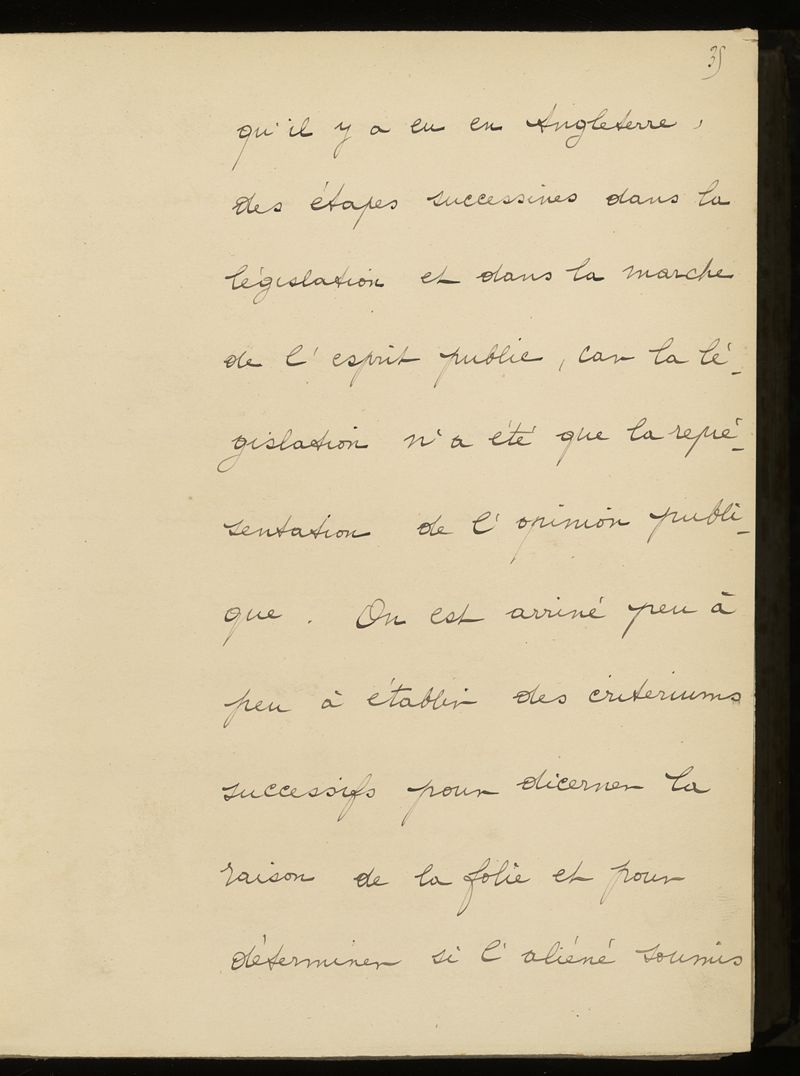 35
qu'il y a eu en Angleterre,
des étapes successives dans la
législation et dans la marche
de l'esprit public, car la lé-
gislation n'a été que la repré-
sentation de l'opinion publi-
que. On est arrivé peu à
peu à établir des criteriums
successifs pour dicerner la
raison de la folie et pour
déterminer si l'aliéné soumis